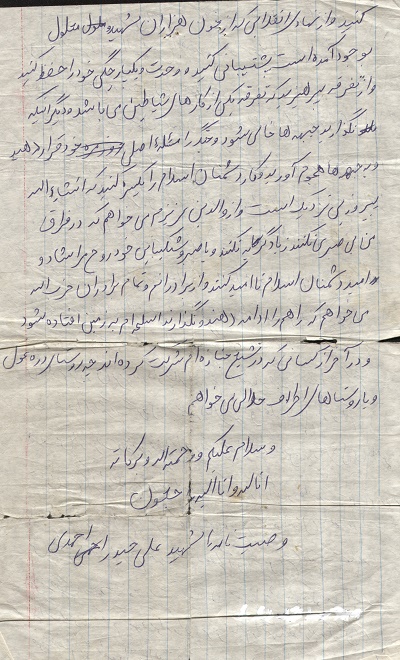 کنید و از نهادهای انقلابی که از خون هزاران شهید و معلول
بوجود آمده است پشتیبانی کنید و وحدت و یکپارچگی خود را حفظ کنید
و از تفرقه بپرهیزید که تفرقه یکی از کارهای شیاطین می باشد و دیگر اینکه
نگذارید جبهه ها خالی شود و جنگ را مسئله اصلی خود قرار دهید
و به جبهه ها هجوم آورید و کار دشمنان اسلام را یکسره کنید که انشاءالله
پیروزی نزدیک است و از والدین عزیزم می خواهم که در فراق
من بی صبری نکنند زیاد گریه نکنند و با صبر و شکیبایی خود روح مرا شاد و
امید دشمنان اسلام را نا امید کنند و از برادرانم و تمام برادران حزب الله
می خواهم که راهم را ادامه دهند و نگذارند اسلحه ام به زمین افتاده شود
و در آخر از کسانی که در تشیع جنازه ام شرکت کرده اند چه روستای دره غول
و یا روستاهای اطراف حلالی می خواهم
و سلام علیکم و رحمته الله و برکاته
انا لله و انا الیه راجعون
وصیت نامه شهید علی حیدر احمدی